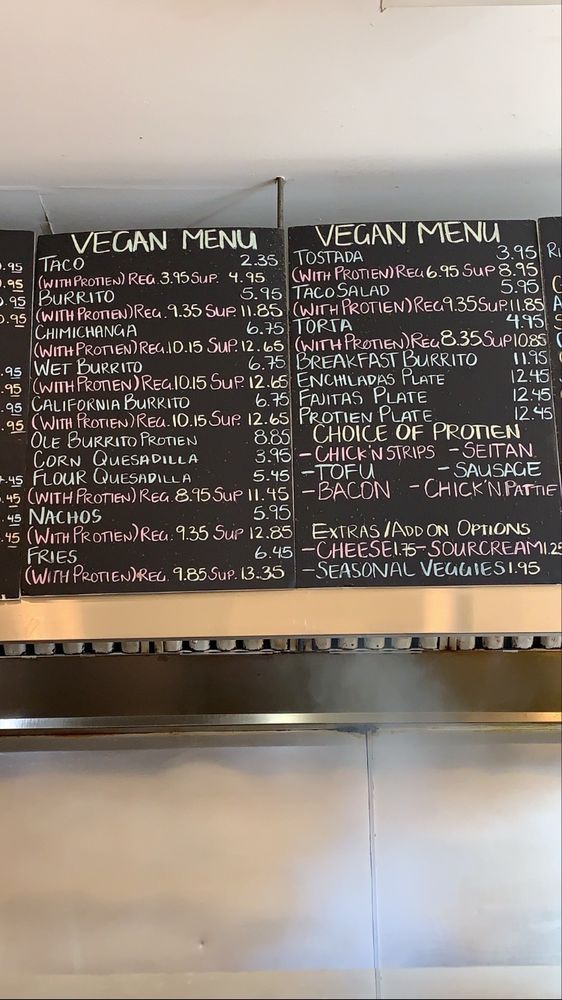 VEGAN MENU
TACO 2.35
(WITH PROTIEN) REG. 3.95 SUP. 4.95
BURRITO 5.95
(WITH PROTIEN) REG. 9.35 SUP. 11.85
CHIMICHANGA 6.75
(WITH PROTIEN) REG. 10.15 SUP. 12.65
WET BURRITO 6.75
(WITH PROTIEN) REG. 10.15 SUP. 12.65
CALIFORNIA BURRITO 6.75
(WITH PROTIEN) REG. 10.15 SUP. 12.65
OLE BURRITO PROTIEN 8.85
CORN QUESADILLA 3.95
FLOUR QUESADILLA 5.45
(WITH PROTIEN) REG. 8.95 SUP 11.45
NACHOS 5.95
(WITH PROTIEN) REG. 9.35 SUP 12.85
FRIES 6.45
(WITH PROTIEN) REG. 9.85 SUP. 13.35
VEGAN MENU
TOSTADA 3.95
(WITH PROTIEN) REG 6.95 SUP 8.95
TACO SALAD 5.95
(WITH PROTIEN) REG 9.35 SUP. 11.85
TORTA 4.95
(WITH PROTIEN) REG 8.35 SUP 10.85
BREAKFAST BURRITO 11.95
ENCHILADAS PLATE 12.45
FAJITAS PLATE 12.45
PROTIEN PLATE 12.45
CHOICE OF PROTIEN
-CHICK'N STRIPS -SEITAN
-TOFU -SAUSAGE
-BACON -CHICK'N PATTIE
EXTRAS/ADD ON OPTIONS
-CHEESE 1.75 -SOURCREAM 1.25
-SEASONAL VEGGIES 1.95